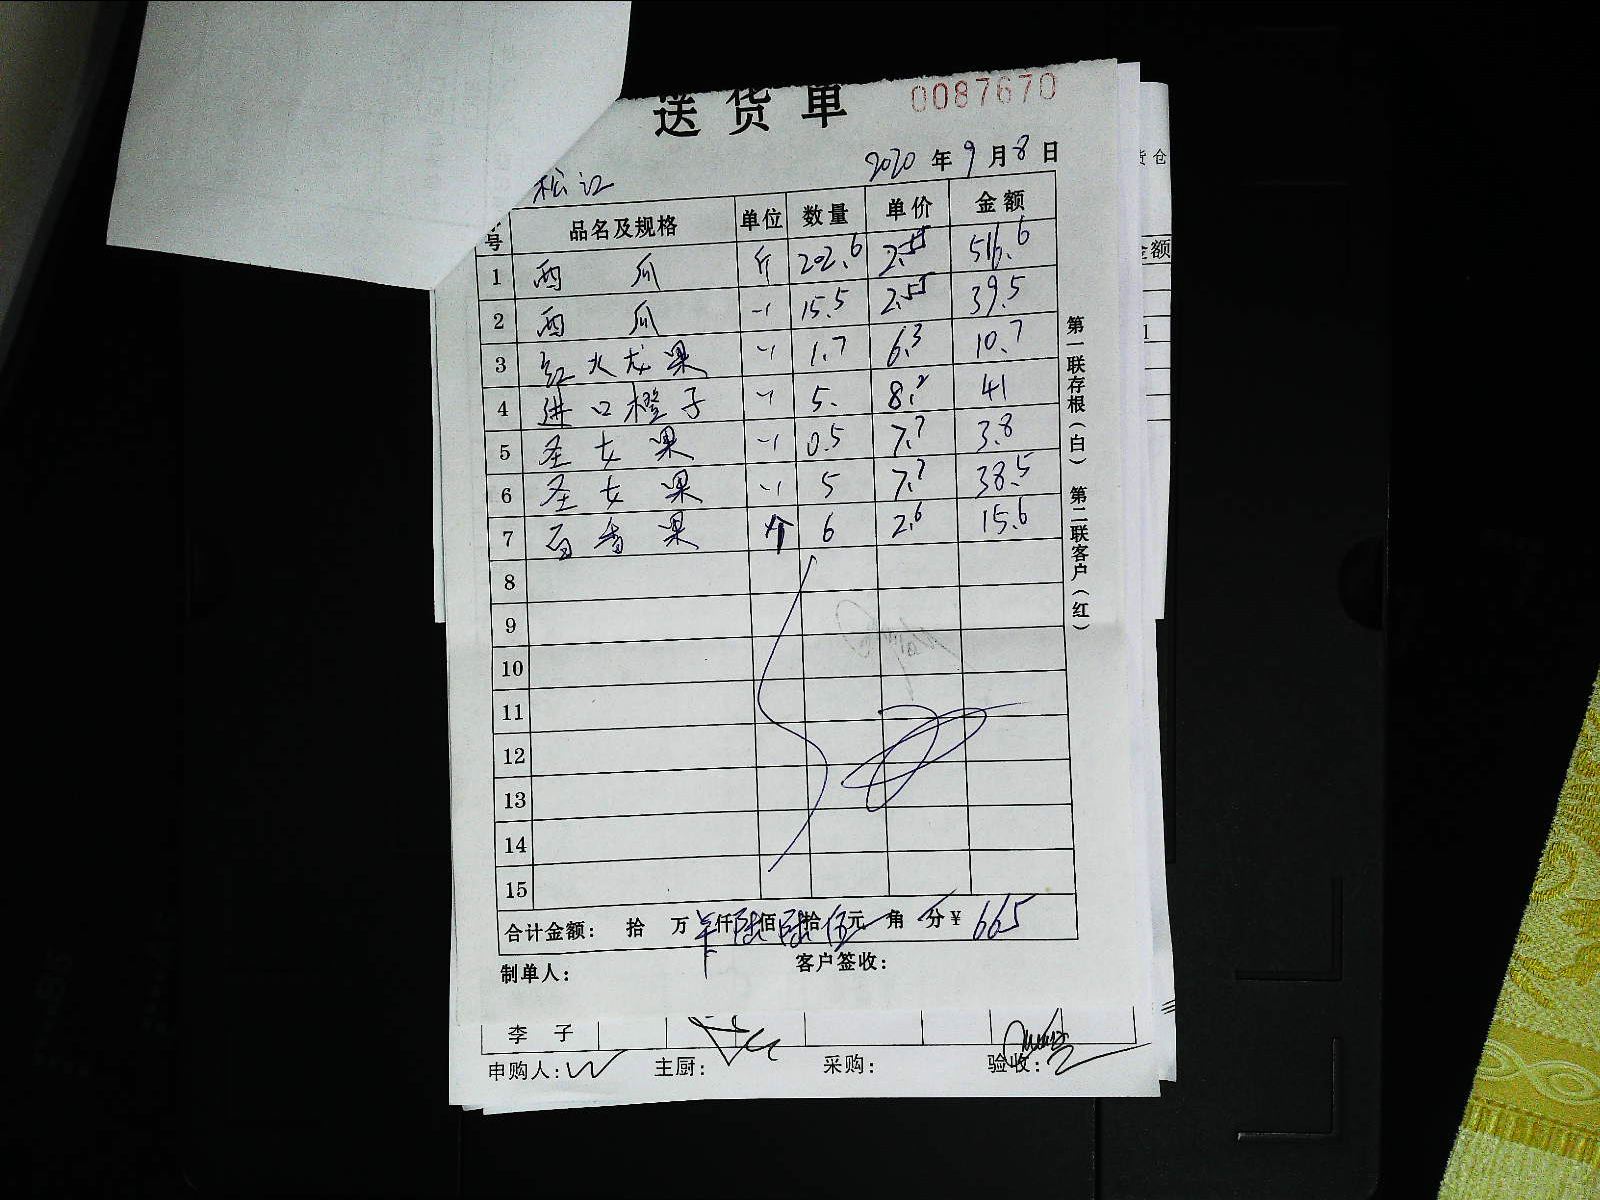 送货单 0087670
2020年9月8日
松江
号 品名及规格 单位 数量 单价 金额
1 西瓜 斤 202.6 2.55 516.6
2 西瓜 〃 15.5 2.55 39.5
3 红火龙果 〃 1.7 6.3 10.7
4 进口橙子 〃 5. 8.2 41
5 圣女果 〃 0.5 7.7 3.8
6 圣女果 〃 5 7.7 38.5
7 百香果 个 6 2.6 15.6
8
9
10
11
12
13
14
15
合计金额： 拾 万 仟陆佰陆拾伍元 角 分￥ 665
制单人： 客户签收：
第一联存根（白） 第二联客户（红）
李子
申购人： 主厨： 采购： 验收：
货仓
金额
1